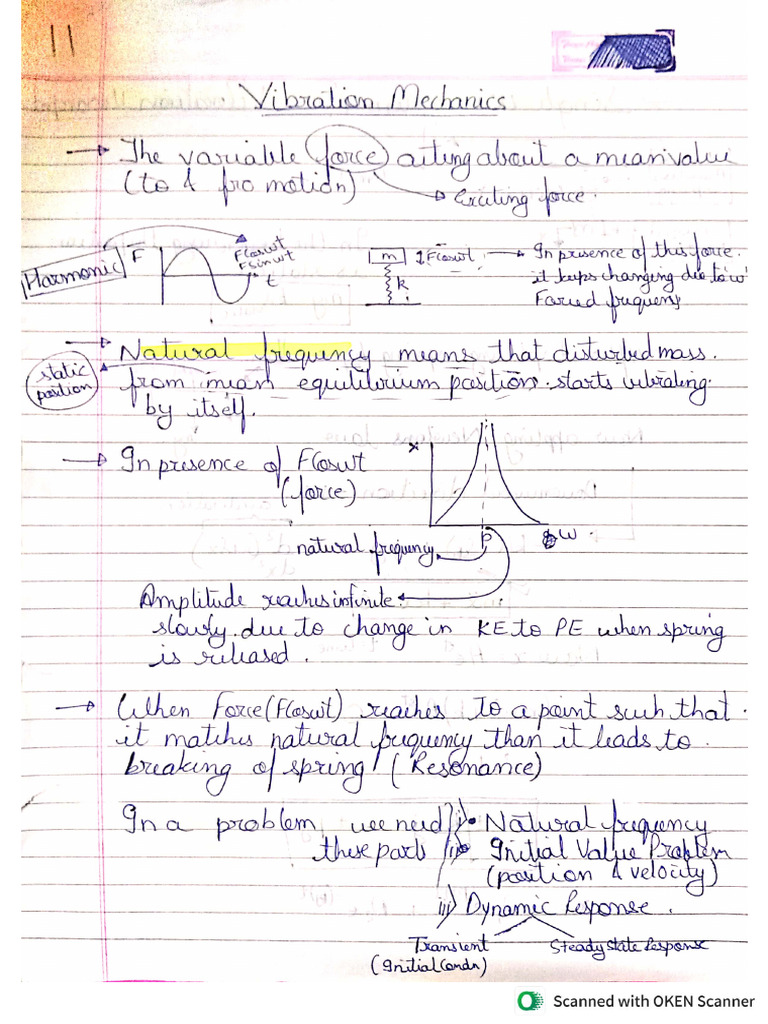 11
Vibration Mechanics
→ The variable force acting about a mean value
(to & fro motion)
Exciting force.
Harmonic
F
Fcoswt
Fsinwt
t
m
↕Fcoswt
k
→ In presence of this force.
it keps changing due to 'w'
Forced frequency
→ Natural frequency means that disturbed mass.
static
position
from mean equilibrium position. starts vibrating.
by itself.
→ In presence of Fcoswt
(force)
x
p
w.
natural frequency
Amplitude reaches infinite.
slowly. due to change in KE to PE when spring
is released.
→ When Force(Fcoswt) reaches to a point such that.
it matches natural frequency than it leads to.
breaking of spring (Resonance)
In a problem we need
these parts
i) • Natural frequency
ii) • Initial Value Problem
(position & velocity)
iii) Dynamic Response.
Transient
(Initial Condn)
Steady State Response
Scanned with OKEN Scanner